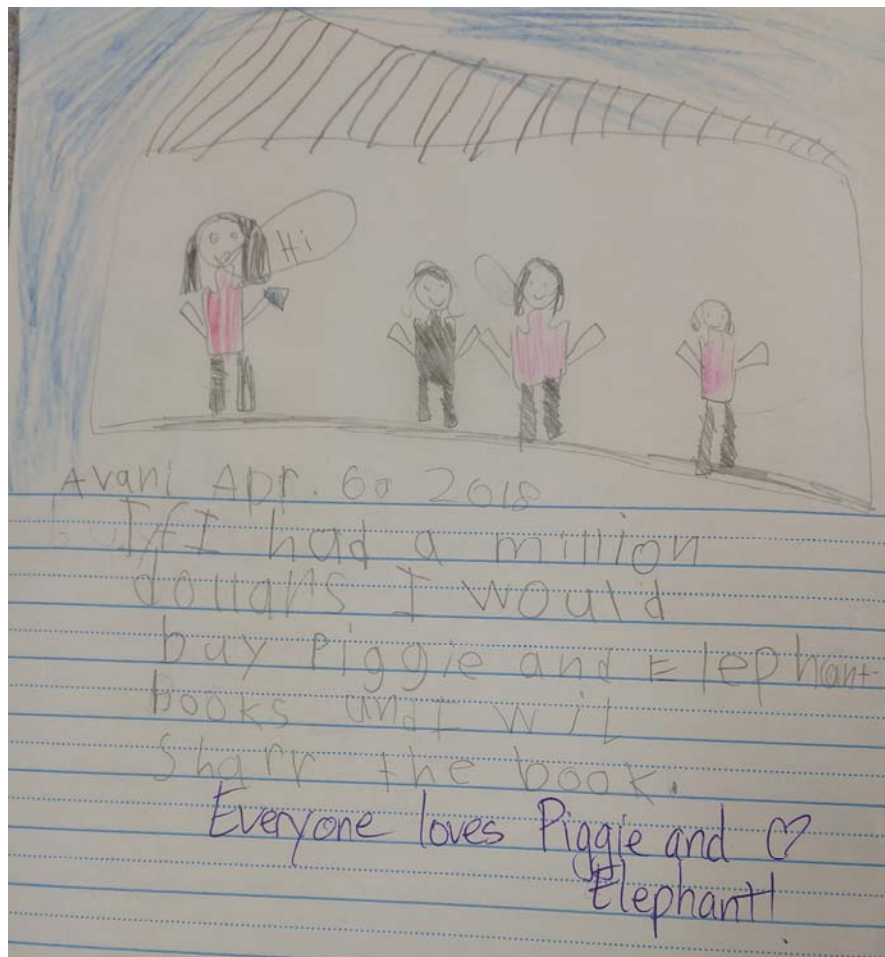 Hi
Avani Apr. 60 2018
If I had a million
dollars I would
buy Piggie and Elephant
books and I wil
Sharr the book.
Everyone loves Piggie and ♡
Elephant!